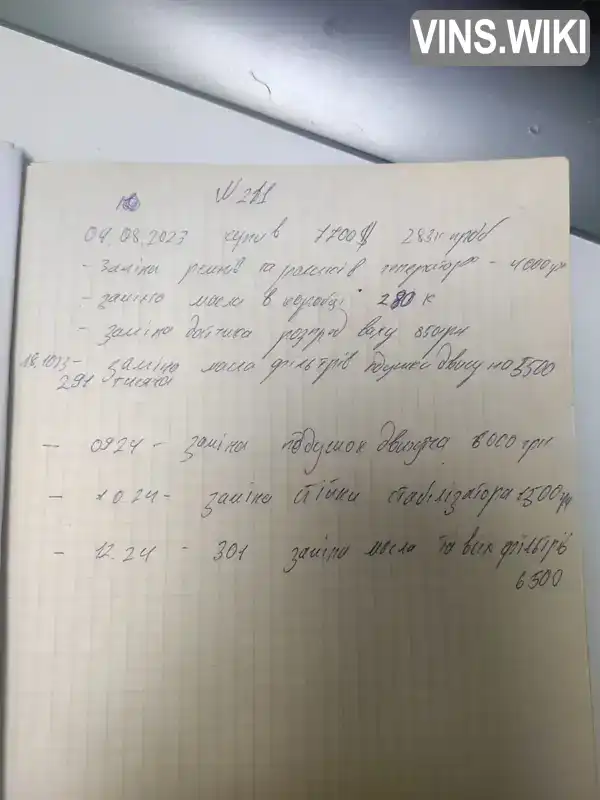 VINS.WIKI
№ 211
04.08.2023 купив 7700$ 283т проб
- заміна ременів та роликів генератора - 4000грн
- заміна масла в коробці 280 к
- заміна датчика розпред валу 850грн
18.10.23 - заміна масла фільтрів подушки двигу на 5500
291 тисяча
- 09.24 - заміна подушок двигуна 8000 грн
- 10.24 - заміна стійки стабілізатора 1500грн
- 12.24 - 301 заміна масла та всіх фільтрів
6500